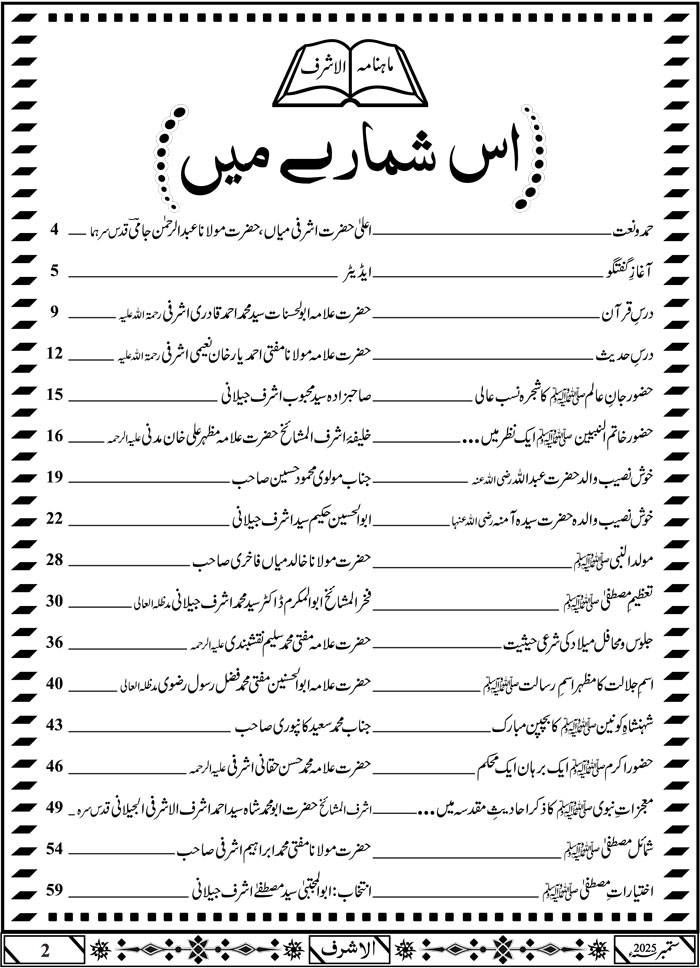 ماہنامہ الاشرف
اس شمارے میں
حمد و نعت اعلیٰ حضرت اشرفی میاں، حضرت مولانا عبدالرحمٰن جامی قدس سرہما 4
آغازِ گفتگو ایڈیٹر 5
درسِ قرآن حضرت علامہ ابوالحسنات سید محمد احمد قادری اشرفی رحمۃ اللہ علیہ 9
درسِ حدیث حضرت علامہ مولانا مفتی احمد یار خان نعیمی اشرفی رحمۃ اللہ علیہ 12
حضور جانِ عالم ﷺ کا شجرہ نسب عالی صاحبزادہ سید محبوب اشرف جیلانی 15
حضور خاتم النبیین ﷺ ایک نظر میں... خلیفۂ اشرف المشائخ حضرت علامہ مظہر علی خان مدنی علیہ الرحمہ 16
خوش نصیب والد حضرت عبداللہ رضی اللہ عنہ جناب مولوی محمود حسین صاحب 19
خوش نصیب والدہ حضرت سیدہ آمنہ رضی اللہ عنہا ابوالحسین حکیم سید اشرف جیلانی 22
مولد النبی ﷺ حضرت مولانا خالد میاں فاخری صاحب 28
تعظیمِ مصطفیٰ ﷺ فخر المشائخ ابوالمکرم ڈاکٹر سید محمد اشرف جیلانی مدظلہ العالی 30
جلوس و محافل میلاد کی شرعی حیثیت حضرت علامہ مفتی محمد سلیم نقشبندی علیہ الرحمہ 36
اسمِ جلالت کا مظہر اسمِ رسالت ﷺ حضرت علامہ ابوالحسنین مفتی محمد فضل رسول رضوی مدظلہ العالی 40
شہنشاہِ کونین ﷺ کا بچپن مبارک جناب محمد سعید کانپوری صاحب 43
حضور اکرم ﷺ ایک برہان ایک محکم حضرت علامہ محمد حسن حقانی اشرفی علیہ الرحمہ 46
معجزاتِ نبوی ﷺ کا ذکر احادیثِ مقدسہ میں... اشرف المشائخ حضرت ابو محمد شاہ سید احمد اشرف الاشرفی الجیلانی قدس سرہ 49
شمائلِ مصطفیٰ ﷺ حضرت مولانا مفتی محمد ابراہیم اشرفی صاحب 54
اختیاراتِ مصطفیٰ ﷺ انتخاب: ابوالمجتبیٰ سید مصطفےٰ اشرف جیلانی 59
ستمبر 2025ء الاشرف 2